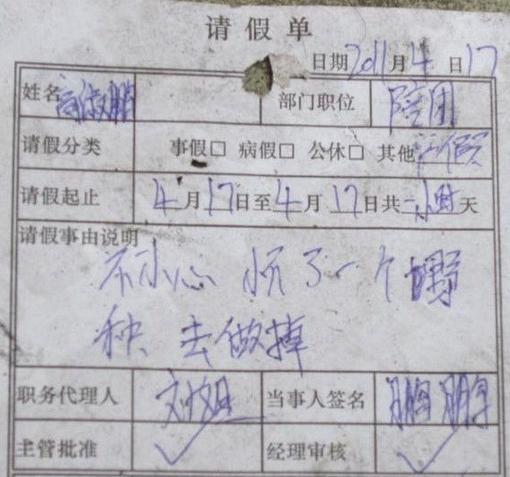 请假单
日期2011月4日17
姓名 部门职位 陪团
请假分类 事假□ 病假□ 公休□ 其他
请假起止 4月17日至4月17日共一小时天
请假事由说明
不小心怀了一个野
种 去做掉
职务代理人 当事人签名
主管批准 ✓ 经理审核 ✓